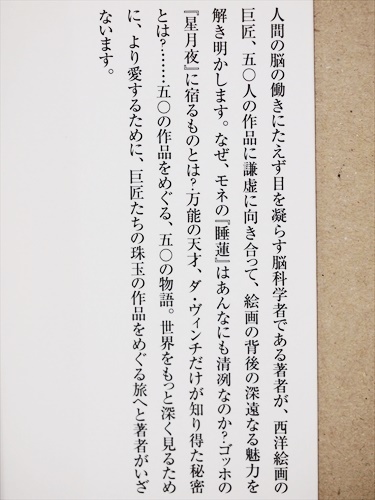 人間の脳の働きにたえず目を凝らす脳科学者である著者が、西洋絵画の
巨匠、五〇人の作品に謙虚に向き合って、絵画の背後の深遠なる魅力を
解き明かします。なぜ、モネの『睡蓮』はあんなにも清冽なのか?ゴッホの
『星月夜』に宿るものとは?万能の天才、ダ・ヴィンチだけが知り得た秘密
とは?………五〇の作品をめぐる、五〇の物語。世界をもっと深く見るため
に、より愛するために、巨匠たちの珠玉の作品をめぐる旅へと著者がいざ
ないます。